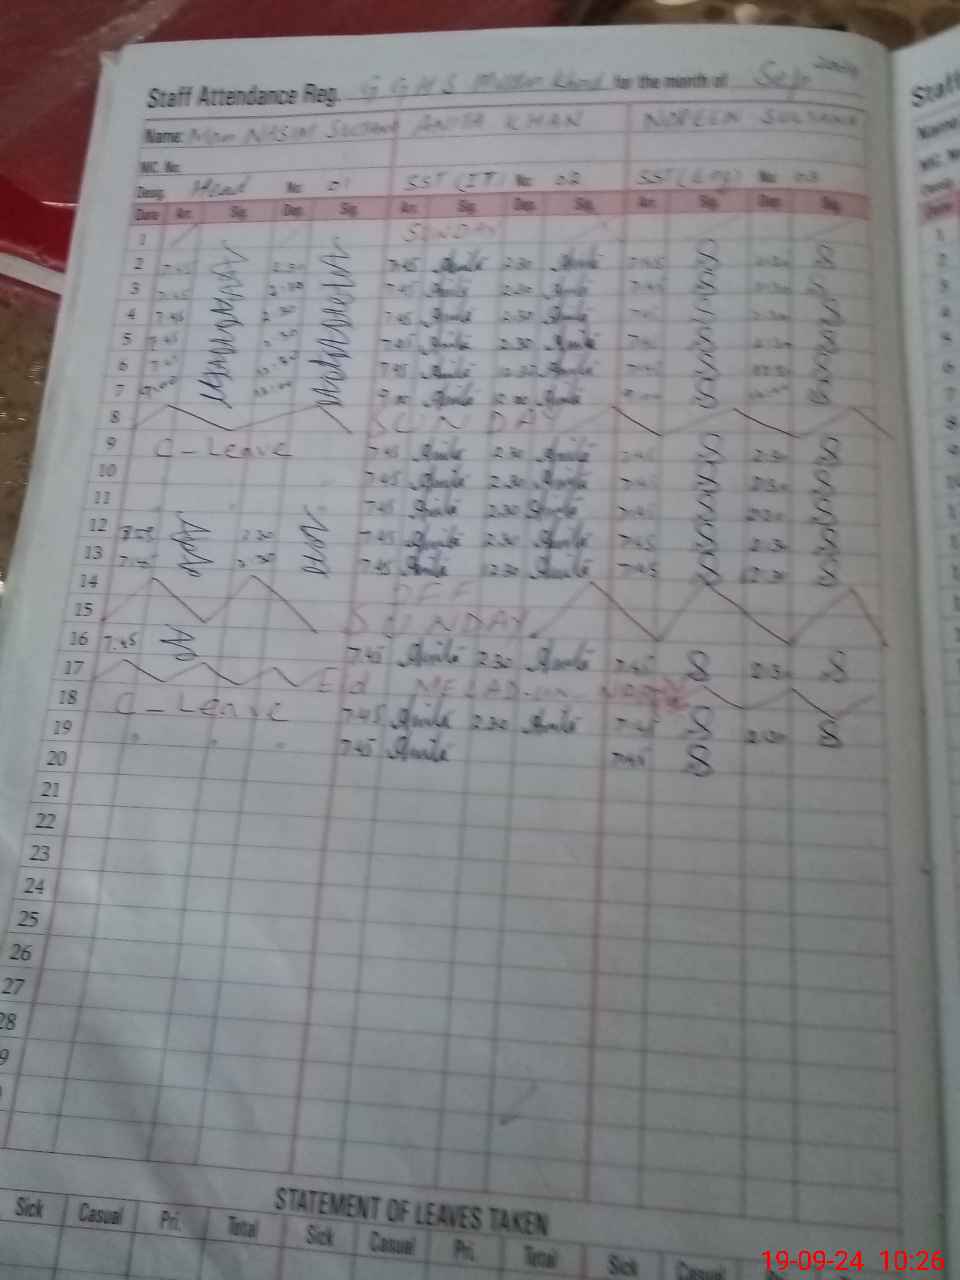 Staff Attendance Reg. G G H S for the month of Sep
Staff
Name: NASIM SULTANA ANITA KHAN NOREEN SULTANA
NIC. No.
Desig. Head No. 01 SST (IT) No. 02 SST (Eng) No. 03
Date Arr. Sig. Dep. Sig. Arr. Sig. Dep. Sig. Arr. Sig. Dep. Sig.
1 SUNDAY
2 7.45 2.30 7.45 Anita 2.30 Anita 7.45 S 2.30 S
3 7.45 2.30 7.45 Anita 2.30 Anita 7.45 S 2.30 S
4 7.45 2.30 7.45 Anita 2.30 Anita 7.45 S 2.30 S
5 7.45 2.30 7.45 Anita 2.30 Anita 7.45 S 2.30 S
6 7.45 12.30 7.45 Anita 12.30 Anita 7.45 S 12.30 S
7 9.00 12.00 9.00 Anita 12.00 Anita 9.00 S 12.00 S
8 SUNDAY
9 C - Leave 7.45 Anita 2.30 Anita 7.45 S 2.30 S
10 7.45 Anita 2.30 Anita 7.45 S 2.30 S
11 7.45 Anita 2.30 Anita 7.45 S 2.30 S
12 2.30 7.45 Anita 2.30 Anita 7.45 S 2.30 S
13 7.45 2.30 7.45 Anita 2.30 Anita 7.45 S 2.30 S
14 OFF
15 SUNDAY
16 7.45 7.45 Anita 2.30 Anita 7.45 S 2.30 S
17 Eid MELAD-un-NABI
18 C - Leave 7.45 Anita 2.30 Anita 7.45 S 2.30 S
19 " " " 7.45 Anita 7.45 S
20
21
22
23
24
25
26
27
28
9
STATEMENT OF LEAVES TAKEN
Sick Casual Pri. Total Sick Casual Pri. Total Sick Casual
19-09-24 10:26